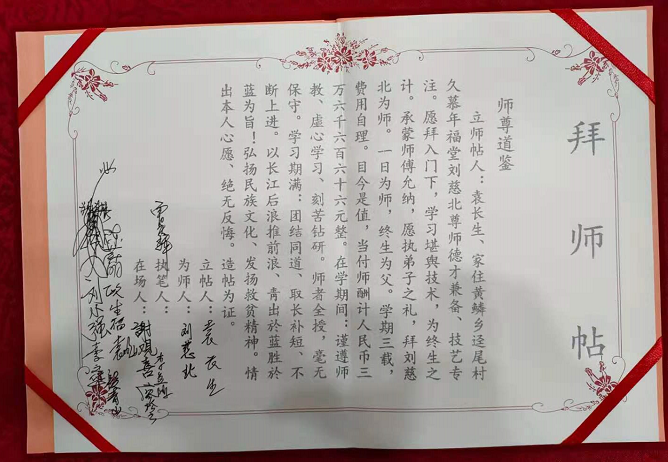 拜师帖
师尊道鉴
立师帖人：袁长生、家住黄鳞乡迳尾村
久慕年福堂刘慈北尊师德才兼备、技艺专
注。愿拜入门下，学习堪舆技术，为终生之
计。承蒙师傅允纳，愿执弟子之礼，拜刘慈
北为师。一日为师，终生为父。学期三载，
费用自理。目今是值，当付师酬计人民币三
万六千六百六十六元整。在学期间：谨遵师
教、虚心学习、刻苦钻研。师者全授，毫无
保守。学习期满：团结同道、取长补短、不
断上进。以长江后浪推前浪、青出於蓝胜於
蓝为旨！弘扬民族文化、发扬救贫精神。情
出本人心愿、绝无反悔。
造帖为证。
立帖人：袁长生
为师人：刘慈北
执笔人：
在场人：